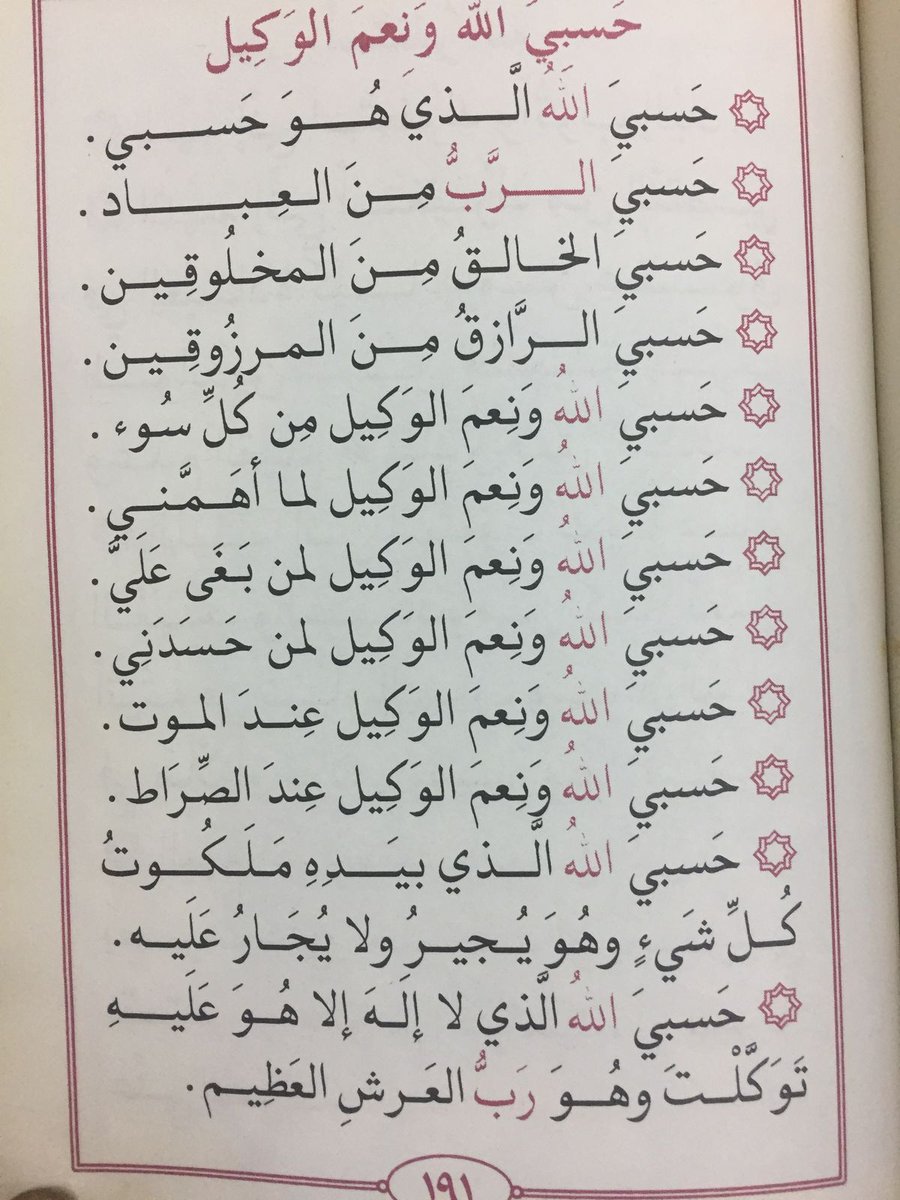 حَسبيَ الله وَنعمَ الوَكِيل
حَسبيَ اللهُ الَّذيَ هُوَ حَسبي .
حَسبيَ الرَّبُّ مِنَ العِباد .
حَسبيَ الخالقُ مِنَ المخلُوقِين .
حَسبيَ الرَّازقُ مِنَ المرزُوقِين .
حَسبيَ اللهُ وَنِعمَ الوَكِيل مِن كُلِّ سُوء .
حَسبيَ اللهُ وَنِعمَ الوَكِيل لما أهَمَّنِي .
حَسبيَ اللهُ وَنِعمَ الوَكِيل لمن بَغَى عَلَيَّ .
حَسبيَ اللهُ وَنِعمَ الوَكِيل لمن حَسَدَنِي .
حَسبيَ اللهُ وَنِعمَ الوَكِيل عِندَ الموت .
حَسبيَ اللهُ وَنِعمَ الوَكِيل عِندَ الصِّرَاط .
حَسبيَ اللهُ الَّذي بيَدِهِ مَلَكُوتُ
كُلِّ شَيءٍ وهُوَ يُجيرُ ولا يُجَارُ عَلَيه .
حَسبيَ اللهُ الَّذي لا إلَهَ إلا هُوَ عَلَيهِ
تَوَكَّلْتَ وهُوَ رَبُّ العَرشِ العَظِيم .
١٩١